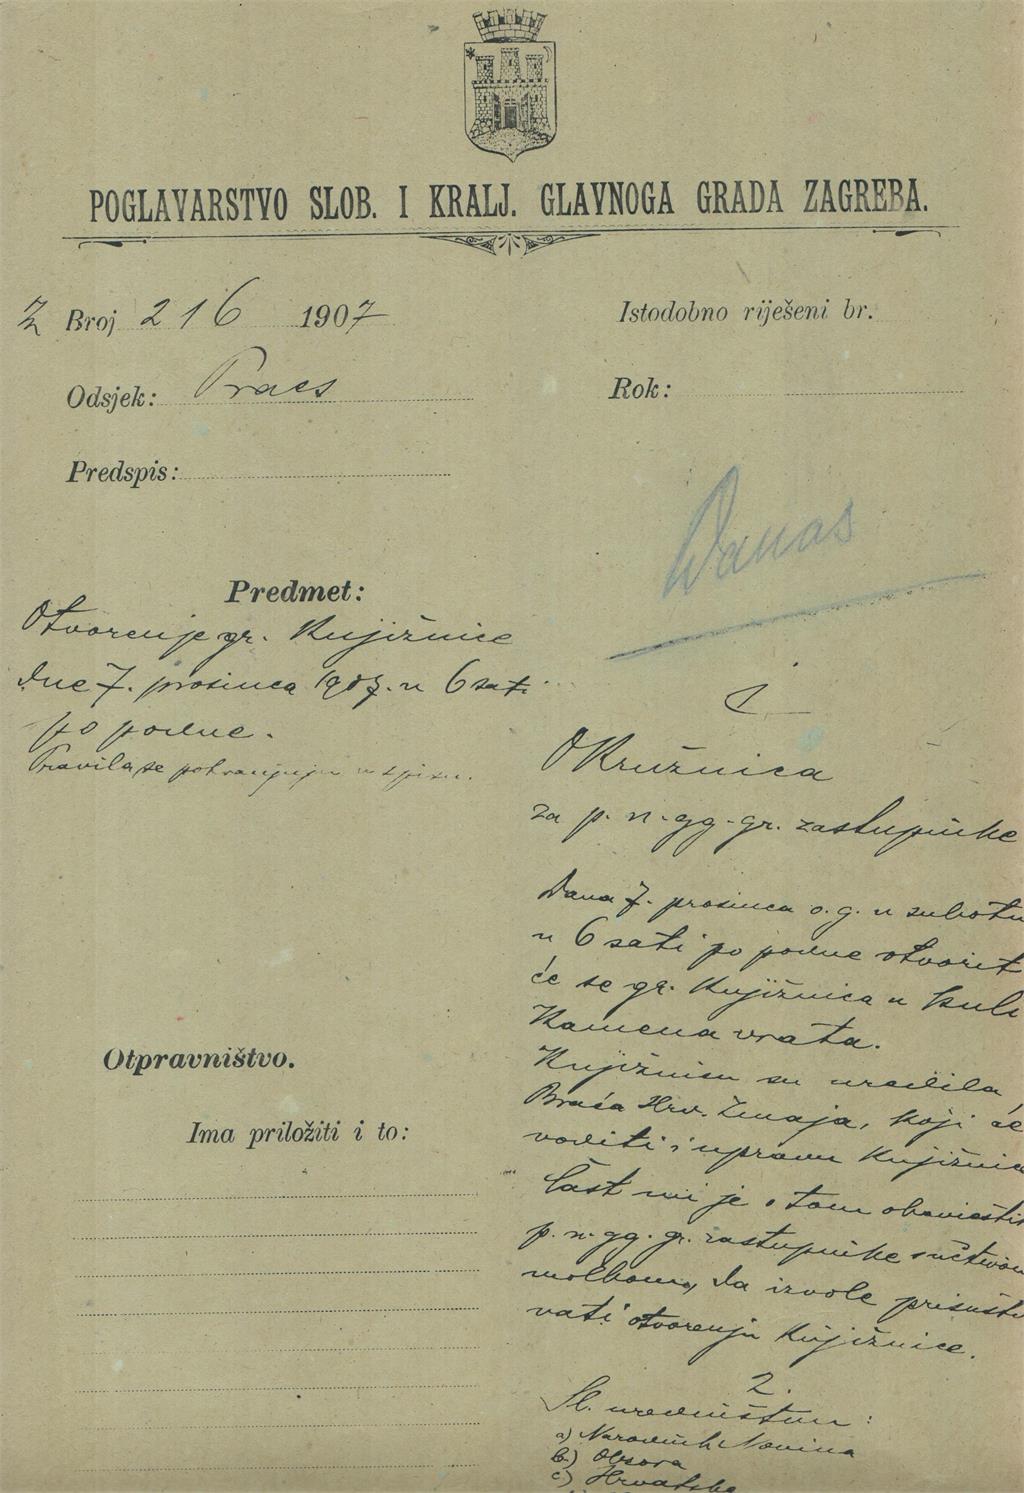 POGLAVARSTVO SLOB. I KRALJ. GLAVNOGA GRADA ZAGREBA.
Broj 216 1907
Istodobno riješeni br.
Odsjek: Praes
Rok:
Predspis:
Danas
Predmet:
Otvorenje gr. Knjižnice
dne 7. prosinca 1907. u 6 sati
po podne.
Pravila se pohranjuju u spisu.
1
Okružnica
za p. n. gg. gr. zastupnike
Dana 7. prosinca o. g. u subotu
u 6 sati po podne otvorit
će se gr. Knjižnica u kuli
Kamena vrata.
Knjižnicu su uredila
Braća Hrv. Zmaja, koji će
voditi i upravu Knjižnice
Čast mi je o tom obaviestiti
p. n. gg. gr. zastupnike s učtivom
molbom, da izvole prisustvo
vati otvorenju Knjižnice.
Otpravništvo.
Ima priložiti i to:
2.
Sl. uredništvu:
a) Narodnih Novina
b) Obzora
c) Hrvatske